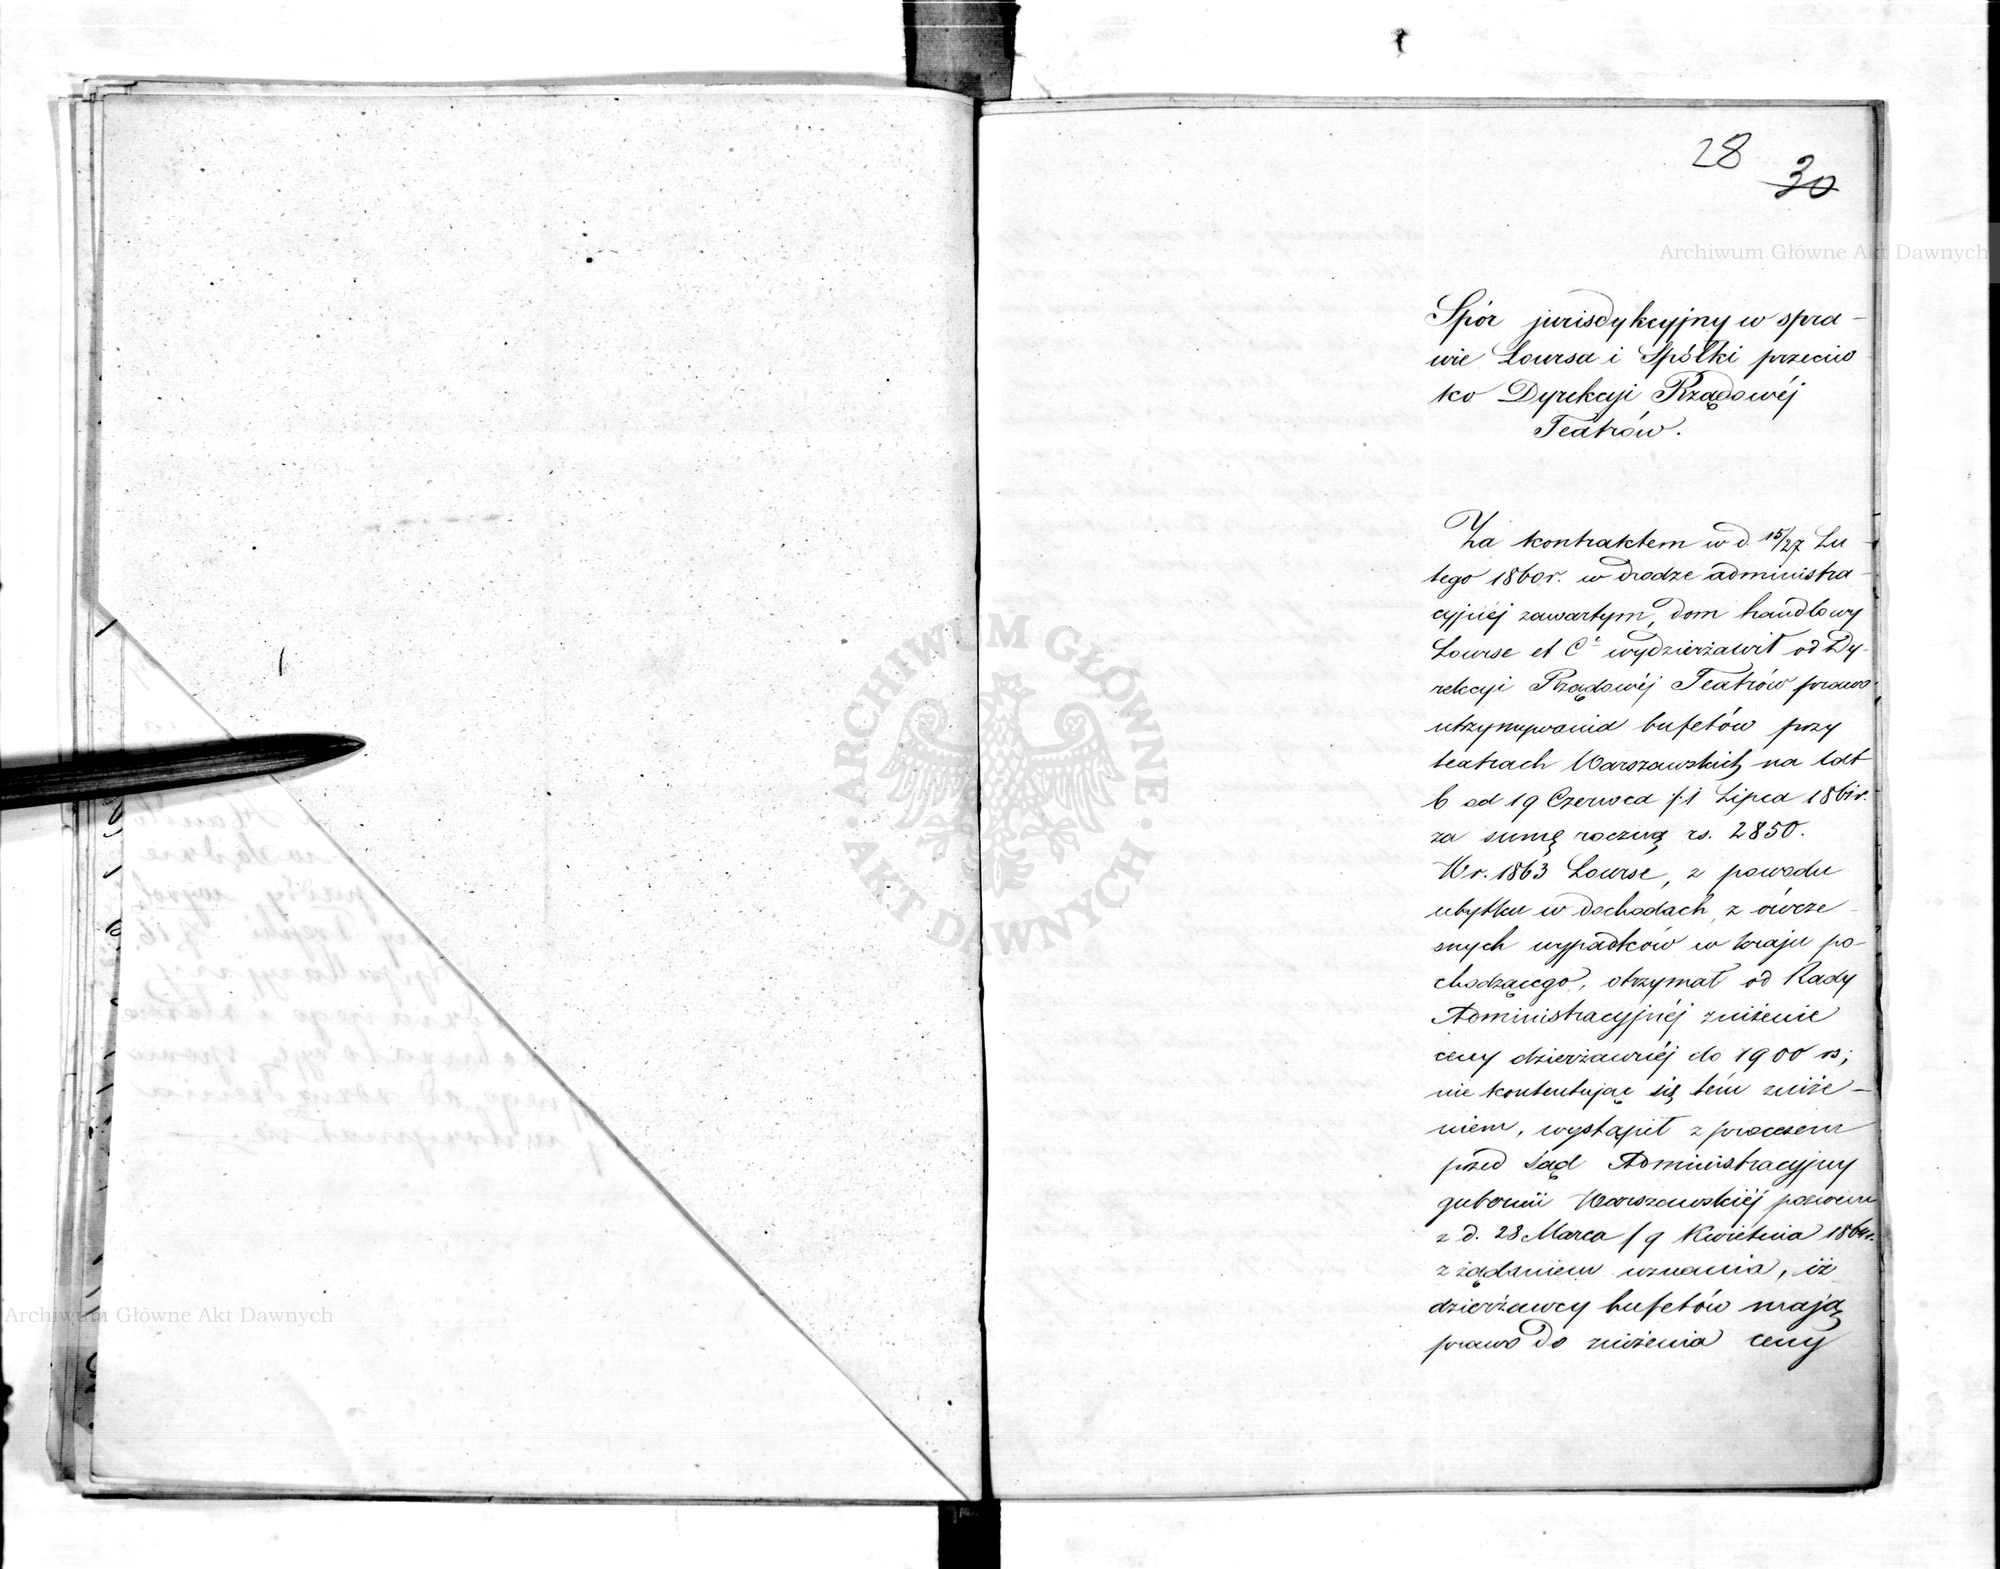 28
30
Archiwum Główne Akt Dawnych
Spór jurisdykcyjny w spra-
wie Loursa i Spółki przeciw
ko Dyrekcyi Rządowéj
Teatrów.
Za kontraktem w d. 15/27 Lu-
tego 1860 r. w drodze administra-
cyjnéj zawartym, dom handlowy
Lourse et Cⁱᵉ wydzierżawił od Dy-
rekcyi Rządowéj Teatrów prawo
utrzymywania bufetów przy
teatrach Warszawskich na lat
6 od 19 Czerwca /:1 Lipca 1861 r.
za sumę roczną rs. 2850.
W r. 1863 Lourse, z powodu
ubytku w dochodach, z ówcze-
snych wypadków w kraju po-
chodzącego, otrzymał od Rady
Administracyjnéj zniżenie
ceny dzierżawnéj do 1900 rs;
nie kontentując się tém zniże-
niem, wystąpił z procesem
przed Sąd Administracyjny
gubernii Warszawskiéj pozwem
z d. 28 Marca / 9 Kwietnia 1864 r.
z żądaniem uznania, iż
dzierżawcy bufetów mają
prawo do zniżenia ceny
ARCHIWUM GŁÓWNE
AKT DAWNYCH
Archiwum Główne Akt Dawnych